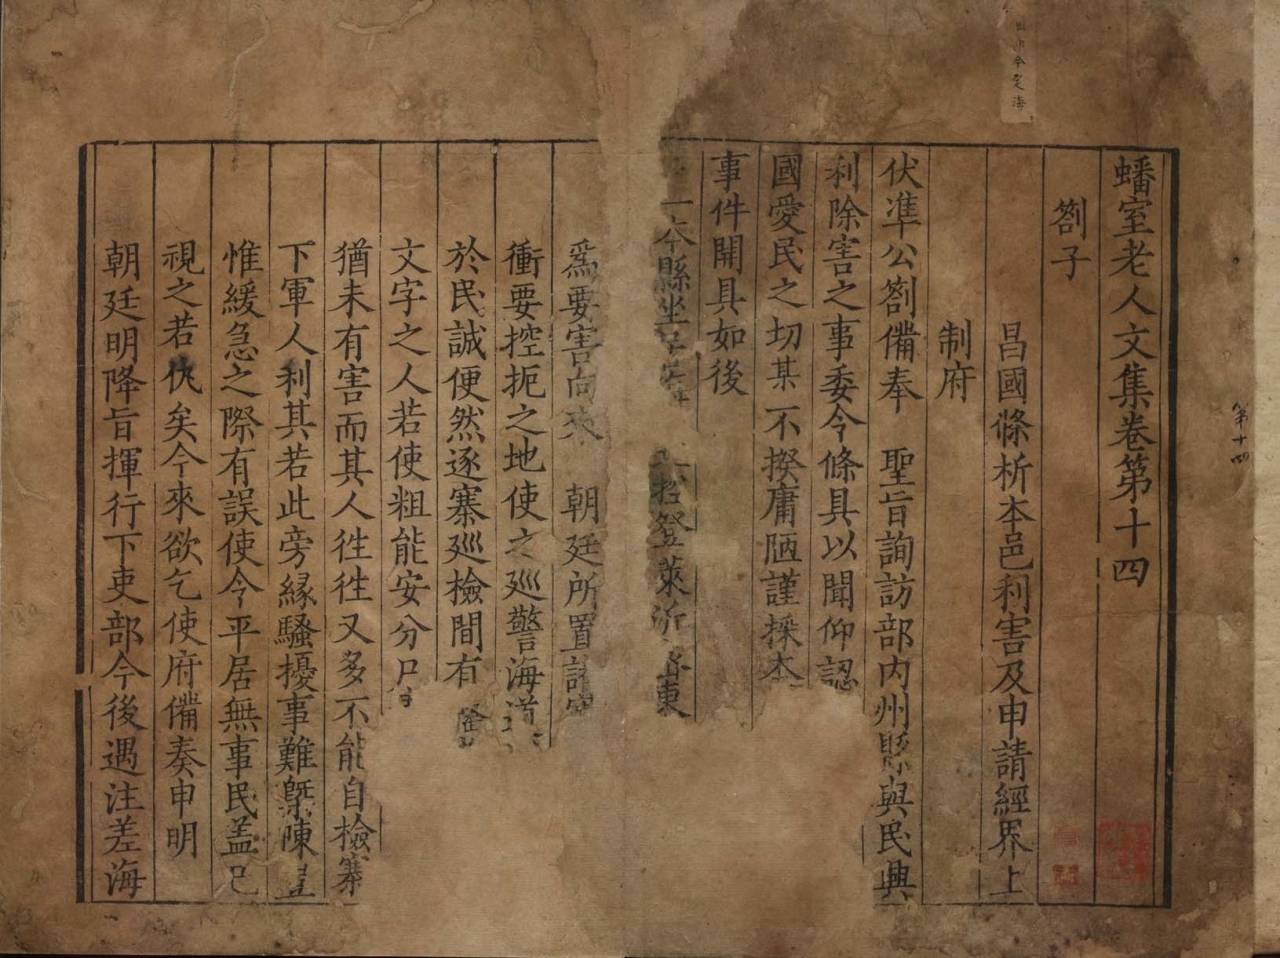 蟠室老人文集卷第十四
劄子
昌國條析本邑利害及申請經界上
制府
伏準公劄備奉 聖旨詢訪部內州縣與民興
利除害之事委令條具以聞仰認
國愛民之切某不揆庸陋謹採本
事件開具如後
一本縣坐 控登萊沂密東
為要害向來 朝廷所置諸寨
衝要控扼之地使之廵警海道
於民誠便然逐寨廵檢間有
文字之人若使粗能安分
猶未有害而其人徃徃又多不能自檢寨
下軍人利其若此旁緣騷擾事難槩陳豈
惟緩急之際有誤使令平居無事民盖已
視之若仇矣今來欲乞使府備奏申明
朝廷明降旨揮行下吏部今後遇注差海
第十四